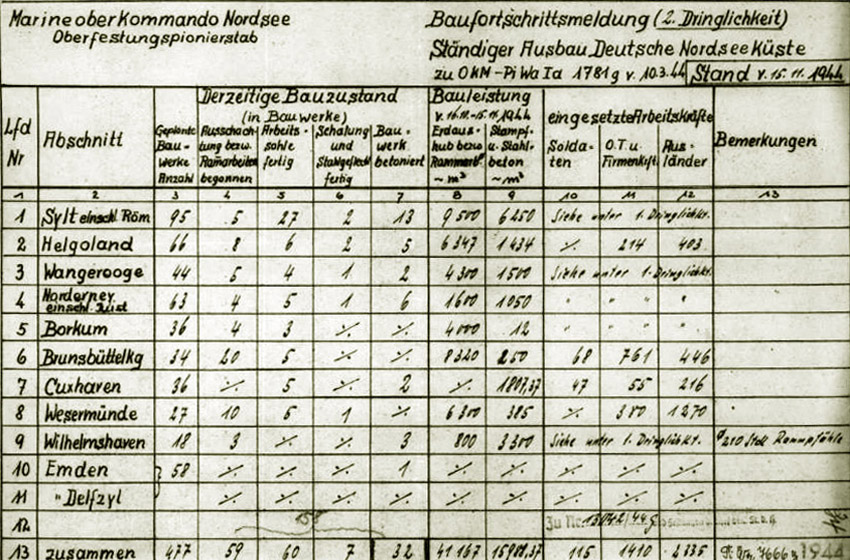 Marineoberkommando Nordsee
Oberfestungspionierstab
Baufortschrittsmeldung (2. Dringlichkeit)
Ständiger Ausbau Deutsche Nordseeküste
zu OKM-PiWaIa 1781g v. 10.3.44 Stand v. 15.11.1944
Lfd Nr
Abschnitt
Geplante Bau-Werke Anzahl
Derzeitige Bauzustand (in Bauwerke)
Ausschachtung bezw. Ramarbeiten begonnen
Arbeits-sohle fertig
Schalung und Stahlgeflecht fertig
Bau-werk betoniert
Bauleistung
v. 16.10.-15.11.1944
Erdaus-hub bezw Rammarb. ~ m³
Stampf- u. Stahl-beton ~ m³
eingesetzte Arbeitskräfte
Solda-ten
O.T. u. Firmenkräft.
Aus-länder
Bemerkungen
1 2 3 4 5 6 7 8 9 10 11 12 13
1 Sylt einschl. Röm 95 5 27 2 13 9500 6250 Siehe unter 1. Dringlichkt.
2 Helgoland 66 8 6 2 5 6347 1434 ⁒ 214 403
3 Wangerooge 44 5 4 1 2 4300 1500 Siehe unter 1. Dringlichkt.
4 Norderney einschl. Juist 63 4 5 1 6 1600 1050 " " "
5 Borkum 36 4 3 ⁒ ⁒ 4000 12 " " "
6 Brunsbüttelkg 34 20 5 ⁒ ⁒ 8320 250 68 761 446
7 Cuxhaven 36 ⁒ 5 ⁒ 2 ⁒ 1807,37 47 55 216
8 Wesermünde 27 10 5 1 ⁒ 6300 385 ⁒ 380 1270
9 Wilhelmshaven 18 3 ⁒ ⁒ 3 800 3300 Siehe unter 1. Dringlichkt. 210 Stck Rammpfähle
10 Emden 58 ⁒ ⁒ ⁒ 1 ⁒ ⁒ ⁒ ⁒ ⁒
11 " Delfzyl ⁒ ⁒ ⁒ ⁒ ⁒ ⁒ ⁒ ⁒ ⁒
12 158 Zu Nr. 13042/44 g
13 zusammen 477 59 60 7 32 41167 15988,37 115 1410 2335 1944